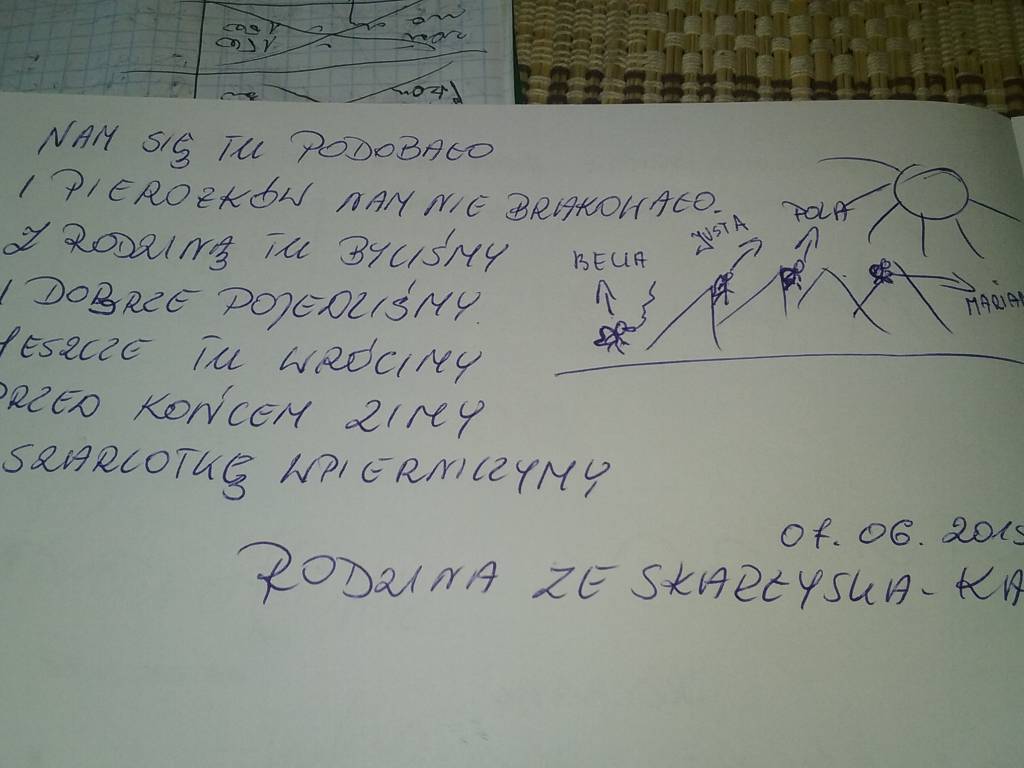 NAM SIĘ TU PODOBAŁO
I PIEROŻKÓW NAM NIE BRAKOWAŁO.
Z RODZINĄ TU BYLIŚMY
I DOBRZE POJEDLIŚMY.
JESZCZE TU WRÓCIMY
PRZED KOŃCEM ZIMY
SZARLOTKĘ WPIERNICZYMY
BELIA
JUSTA
POLA
MARIAN
07.06.2015
RODZINA ZE SKARŻYSKA-KA